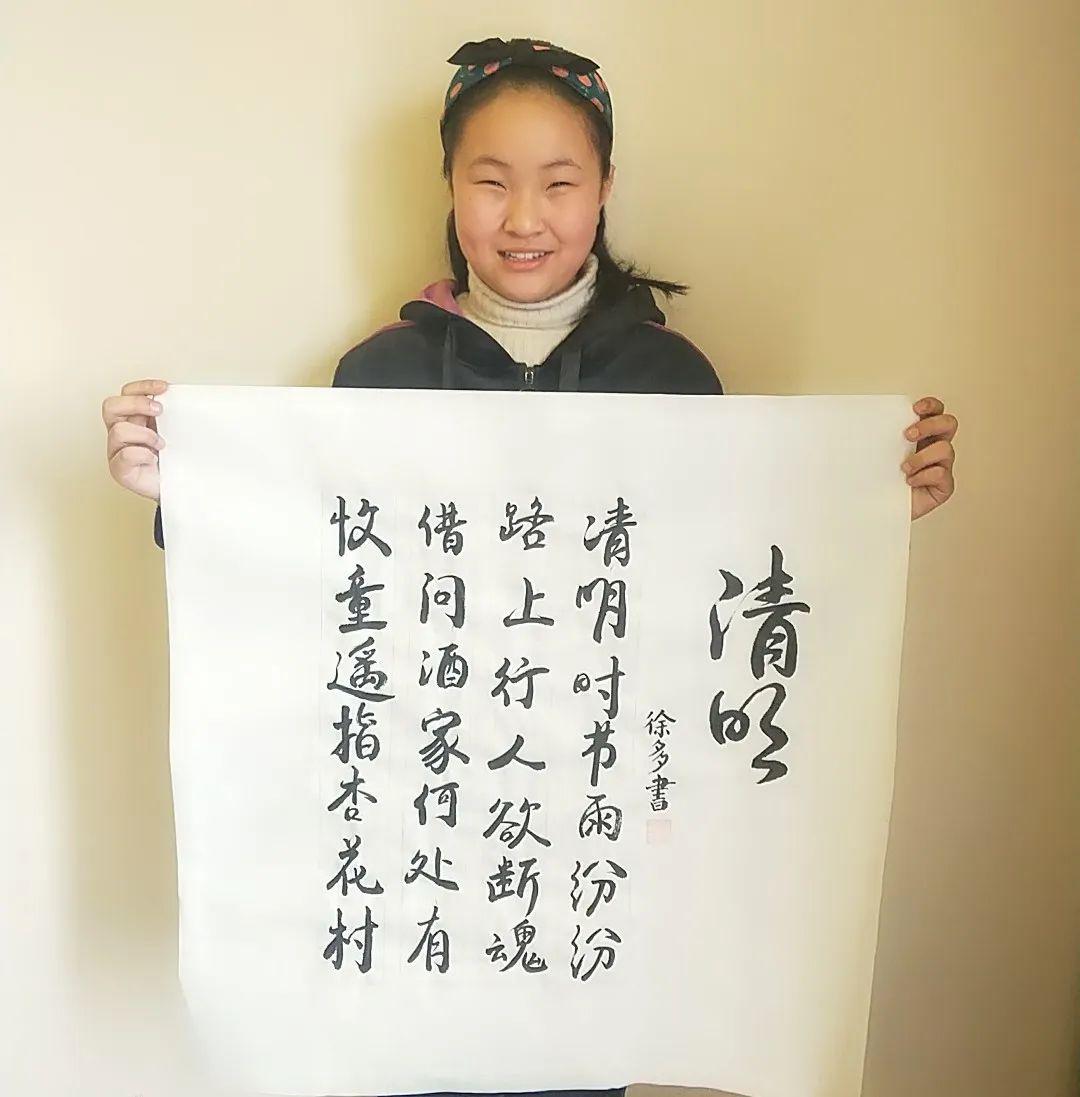 清明
徐多書
清明时节雨纷纷
路上行人欲断魂
借问酒家何处有
牧童遥指杏花村